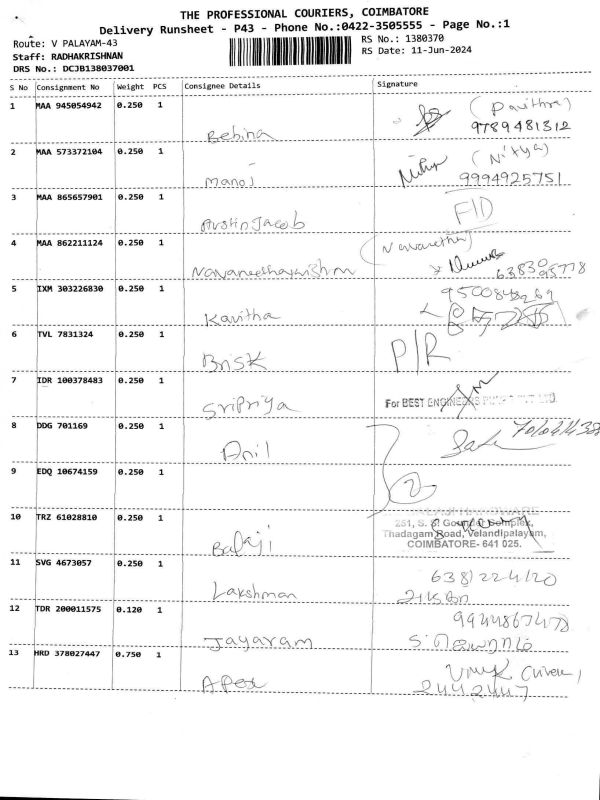 THE PROFESSIONAL COURIERS, COIMBATORE
Delivery Runsheet - P43 - Phone No.:0422-3505555 - Page No.:1
Route: V PALAYAM-43
RS No.: 1380370
Staff: RADHAKRISHNAN
RS Date: 11-Jun-2024
DRS No.: DCJB138037001
S No Consignment No Weight PCS Consignee Details Signature
1 MAA 945054942 0.250 1 (Pavithra)
Bebina 9789481312
2 MAA 573372104 0.250 1 (Nitya)
Manoj Nithya 9994925751
3 MAA 865657901 0.250 1
Austin Jacob F/D
4 MAA 862211124 0.250 1 (Navaneetha)
Navaneethakrishnan 63830 95778
5 IXM 303226830 0.250 1
Kavitha
6 TVL 7831324 0.250 1
Brisk P/R
7 IDR 100378483 0.250 1
Sripriya For BEST ENGINEERS
8 DDG 701169 0.250 1
Anil
9 EDQ 10674159 0.250 1 2
10 TRZ 61028810 0.250 1 HARDWARE
251, S. S. Gounder Complex,
Thadagam Road, Velandipalayam,
Balaji COIMBATORE- 641 025.
11 SVG 4673057 0.250 1 6381224120
Lakshman
12 TDR 200011575 0.120 1 9944867478
Jayaram S. ஜெயராம்
13 HRD 378027447 0.750 1
Apex 2442447